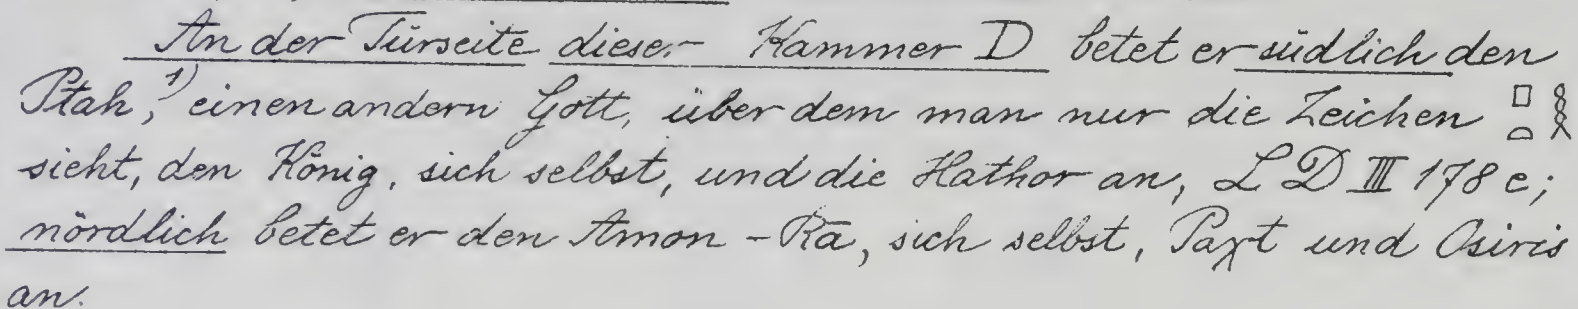 An der Türseite dieser Kammer D betet er südlich den
Ptah,¹⁾ einen andern Gott, über dem man nur die Zeichen 𓊪𓏏𓎛
sieht, den König, sich selbst, und die Hathor an, L D III 178 e;
nördlich betet er den Amon-Rā, sich selbst, Paχt und Osiris
an.